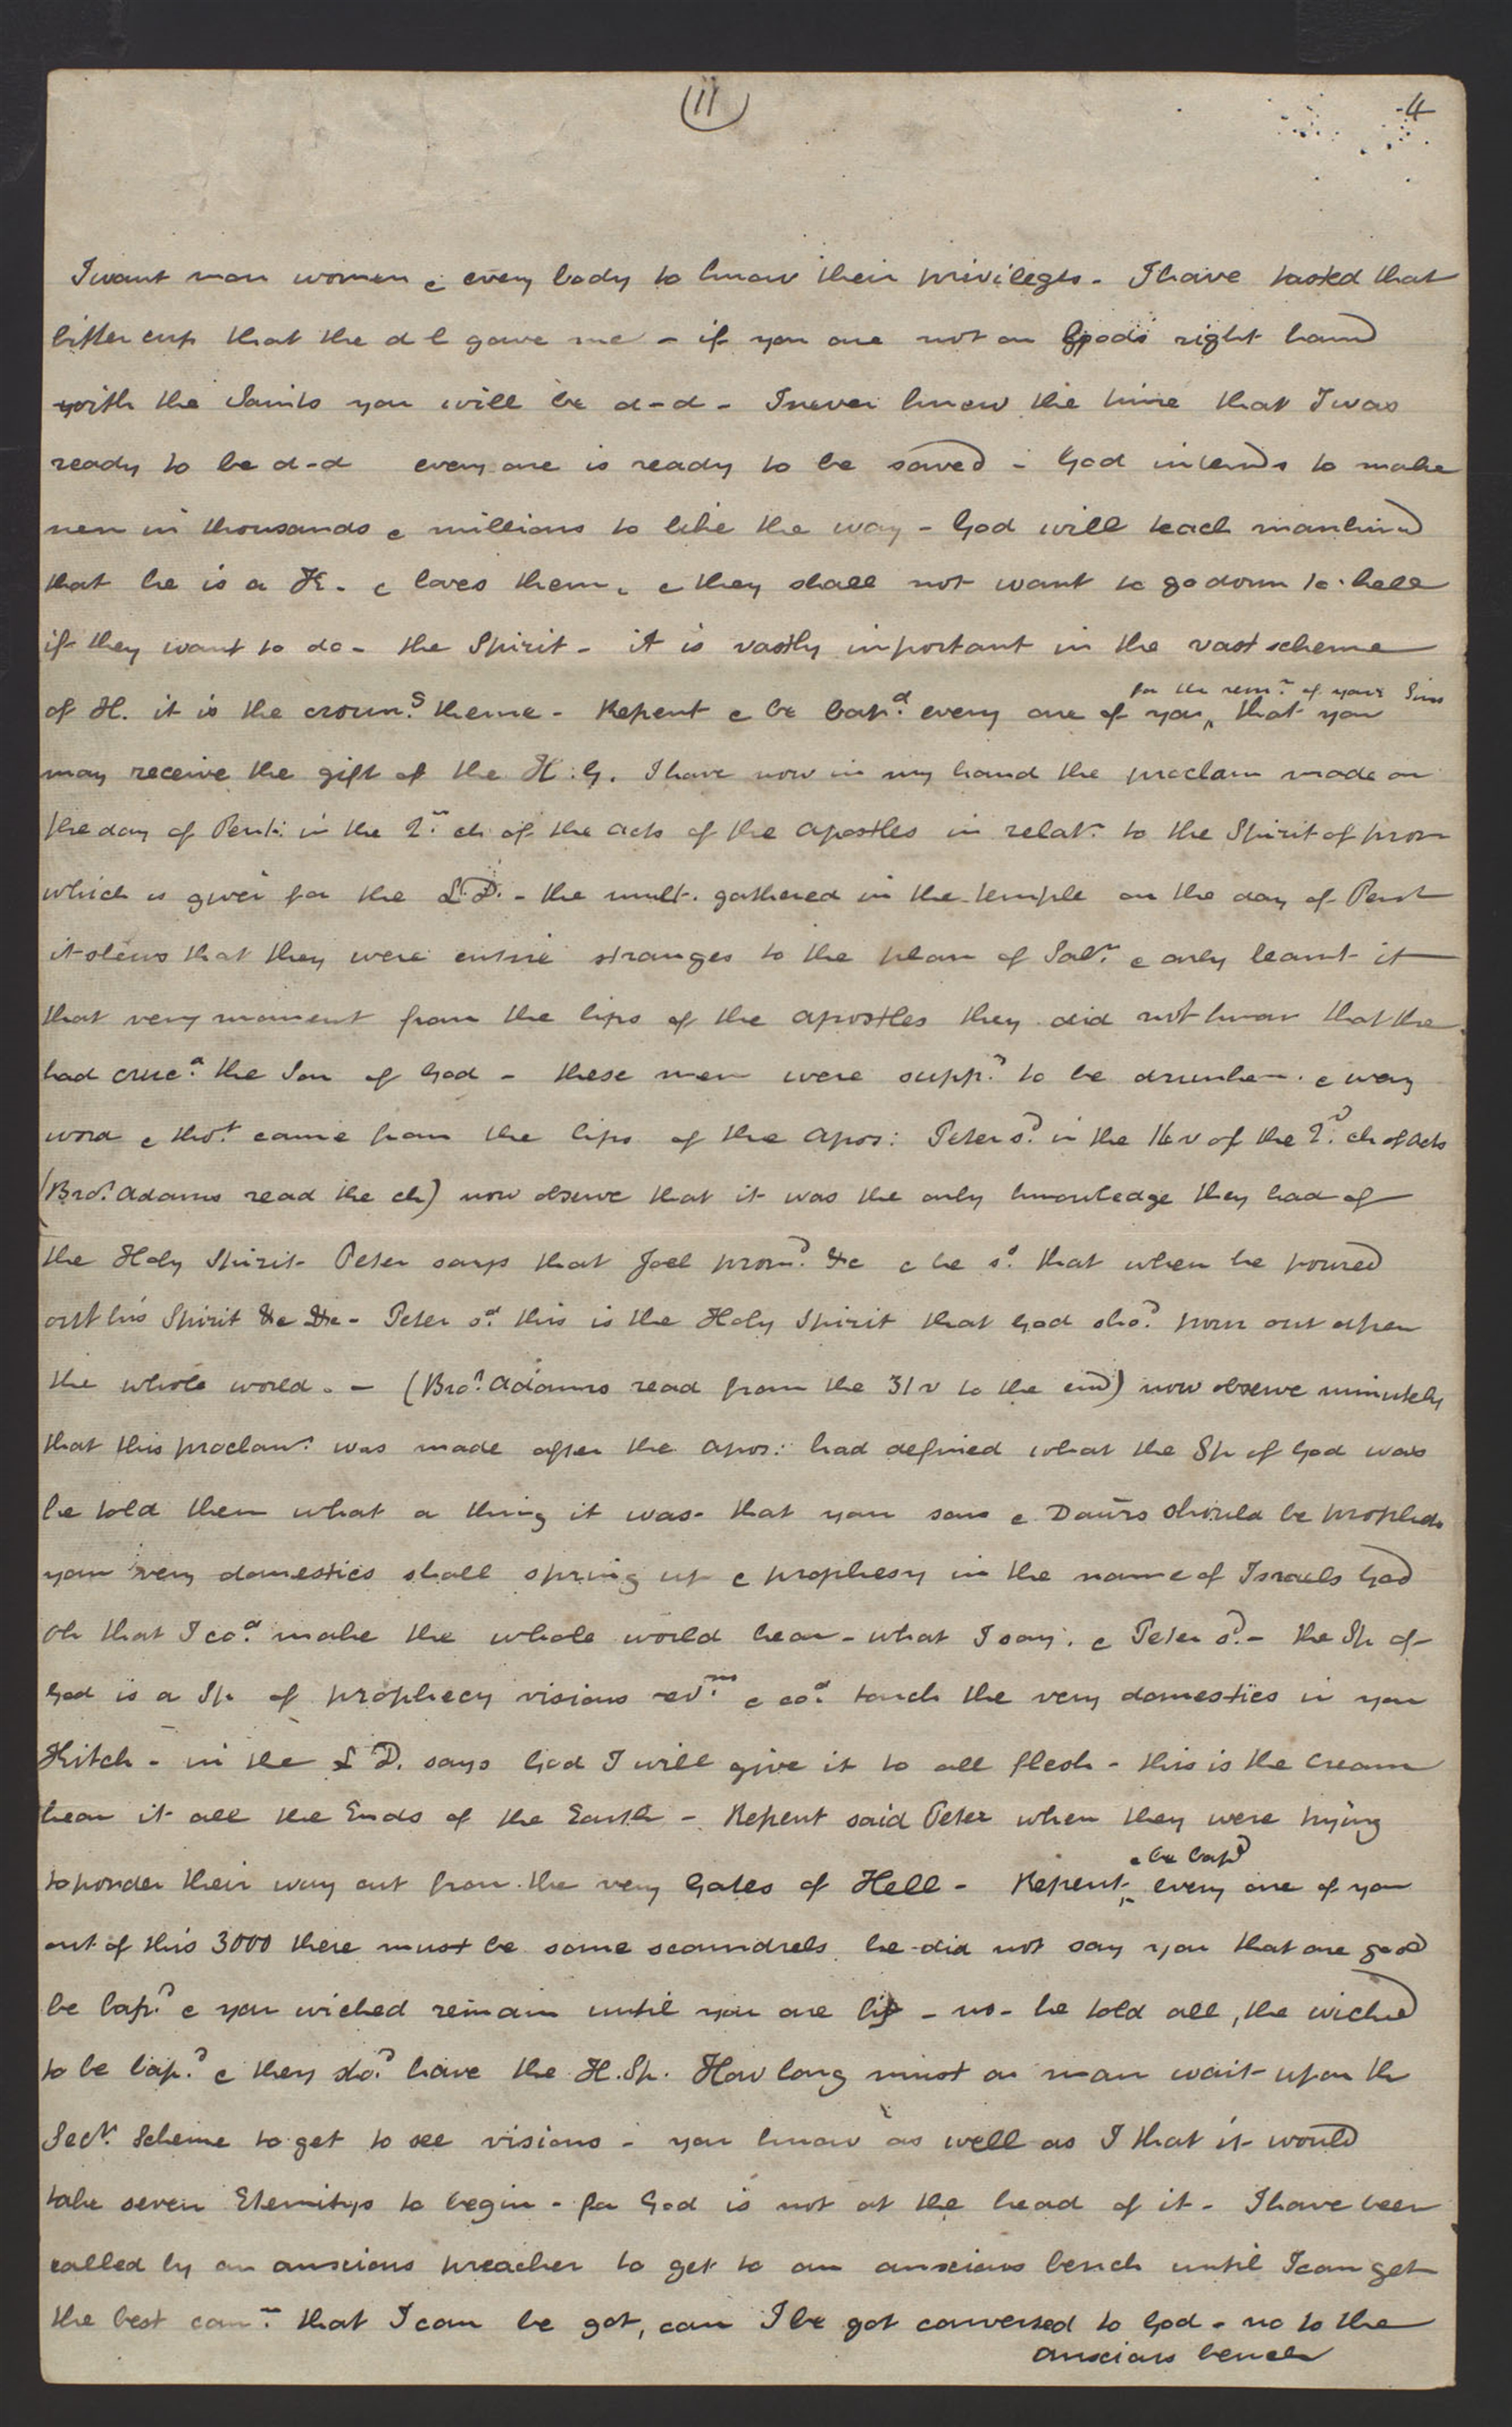 (11)
4
I want man women & every body to know their privileges - I have tasted that
bitter cup that the d l gave me - if you are not on Gods right hand
with the Saints you will be d-d - I never knew the time that I was
ready to be d-d every one is ready to be saved - God intends to make
men in thousands & millions to like the way - God will teach mankind
that he is a K. & loves them, & they shall not want to go down to hell
if they want to do - the Spirit - it is vastly important in the vast scheme
of H. it is the crown.g theme - Repent & be bap.d every one of you for the rem.n of your Sins that you
may receive the gift of the H.G. I have now in my hand the proclam made on
the day of Pent: in the 2.n ch of the acts of the apostles in relat.n to the Spirit of prom
which is given for the L.D. - the mult. gathered in the temple on the day of Pent
it shews that they were entire stranges to the plan of Sal.n & only learnt it
that very moment from the lips of the apostles they did not know that the
had cruc.d the Son of God - these men were supp.d to be drunken. & every
word & tho.t came from the lips of the apos: Peter s.d in the 16 v of the 2.d ch of Acts
(Bro.r Adams read the ch) now observe that it was the only knowledge they had of
the Holy Spirit - Peter says that Joel prom.d &c & he s.d that when he poured
out his Spirit &c &c - Peter s.d this is the Holy Spirit that God sho.d pour out upon
the whole world. - (Bro.r Adams read from the 31 v to the end) now observe minutely
that this proclam.n was made after the apos: had defined what the Sp of God was
he told them what a thing it was - that your sons & Dau'rs should be prophets
your very domestics shall spring up & prophesy in the name of Israels God
Oh that I co.d make the whole world hear - what I say. & Peter s.d - the Sp of
God is a Sp. of prophecy visions rev.ns & co.d touch the very domestics in your
Kitch - in the L D. says God I will give it to all flesh - this is the Cream
hear it all the Ends of the Earth - Repent said Peter when they were trying
to ponder their way out from the very Gates of Hell - Repent & be bap.d every one of you
out of this 3000 there must be some scoundrels he did not say you that are good
be bap.d & you wicked remain until you are - no - he told all, the wicked
to be bap.d & they sho.d have the H.Sp. How long must a man wait upon the
Sec.n Scheme to get to see visions - you know as well as I that it would
take seven Eternitys to begin - for God is not at the head of it - I have been
called by an anxious preacher to get to an anxious bench until I can get
the best that I can be got, can I be got conversed to God - no to the
anxious bench